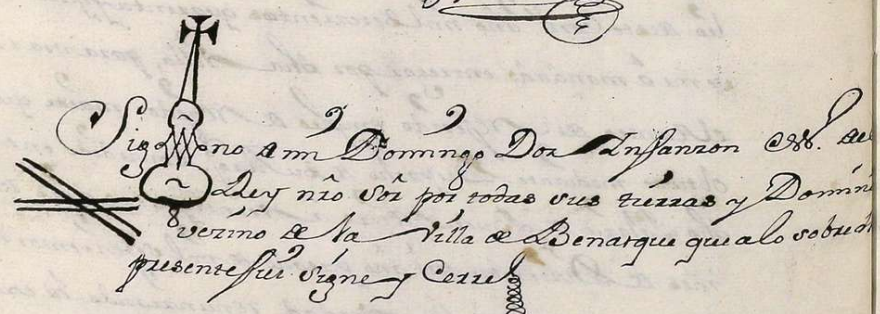 Sig no de mi Domingo Doz Infanzon Essno. del
Rey nro sor por todas sus tierras y Domini
vezino de la Villa de Benasque que a lo sobred
presente fui signe y Cerre